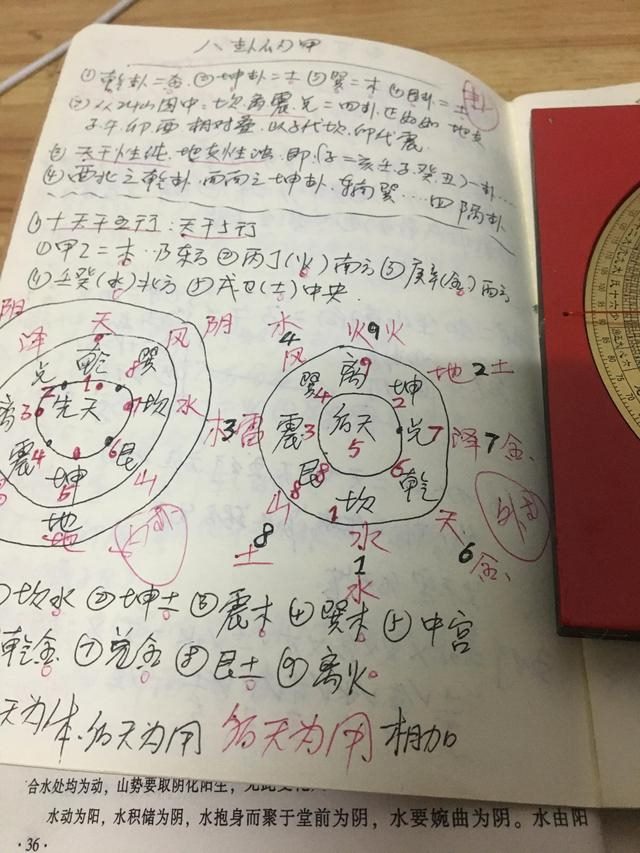 八卦为用
①乾卦=金 ②坤卦=土 ③巽=木 ④艮卦=土
②从24山图中:坎离震兑=四卦
子午卯酉相对应 以子代坎 卯代震
天干性纯 地支性浊 即(子=亥壬子癸丑)一卦…
④西北之乾卦 西南之坤卦 巽…四隅卦
十天干五行:天干5行
①甲乙=木 乃东方 ②丙丁(火)南方 ③庚辛(金)西方
④壬癸(水)北方 ⑤戊己(土)中央
阴 天 风 阴 水 4 火 9 火
泽 乾 1 巽 风 巽 4 离 9 坤 2 地 2 土
兑 2
离 3 先天 坎 水 木 3 雷 震 3 后天 5 兑 7 泽 7 金
震 4 坤 艮 6 山 山 8 艮 8 坎 1 乾 6 天 6 金
地 土 8 水 1 水
坎水 ②坤土 ③震木 ④巽木 ⑤中宫
乾金 ⑦兑金 ⑧艮土 ⑨离火
天为体 后天为用 后天为用 相加
合水处均为动,山势要取阴化阳生,
水动为阳,水积储为阴,水抱身而聚于堂前为阴,水要婉曲为阴。水由阳
·36·